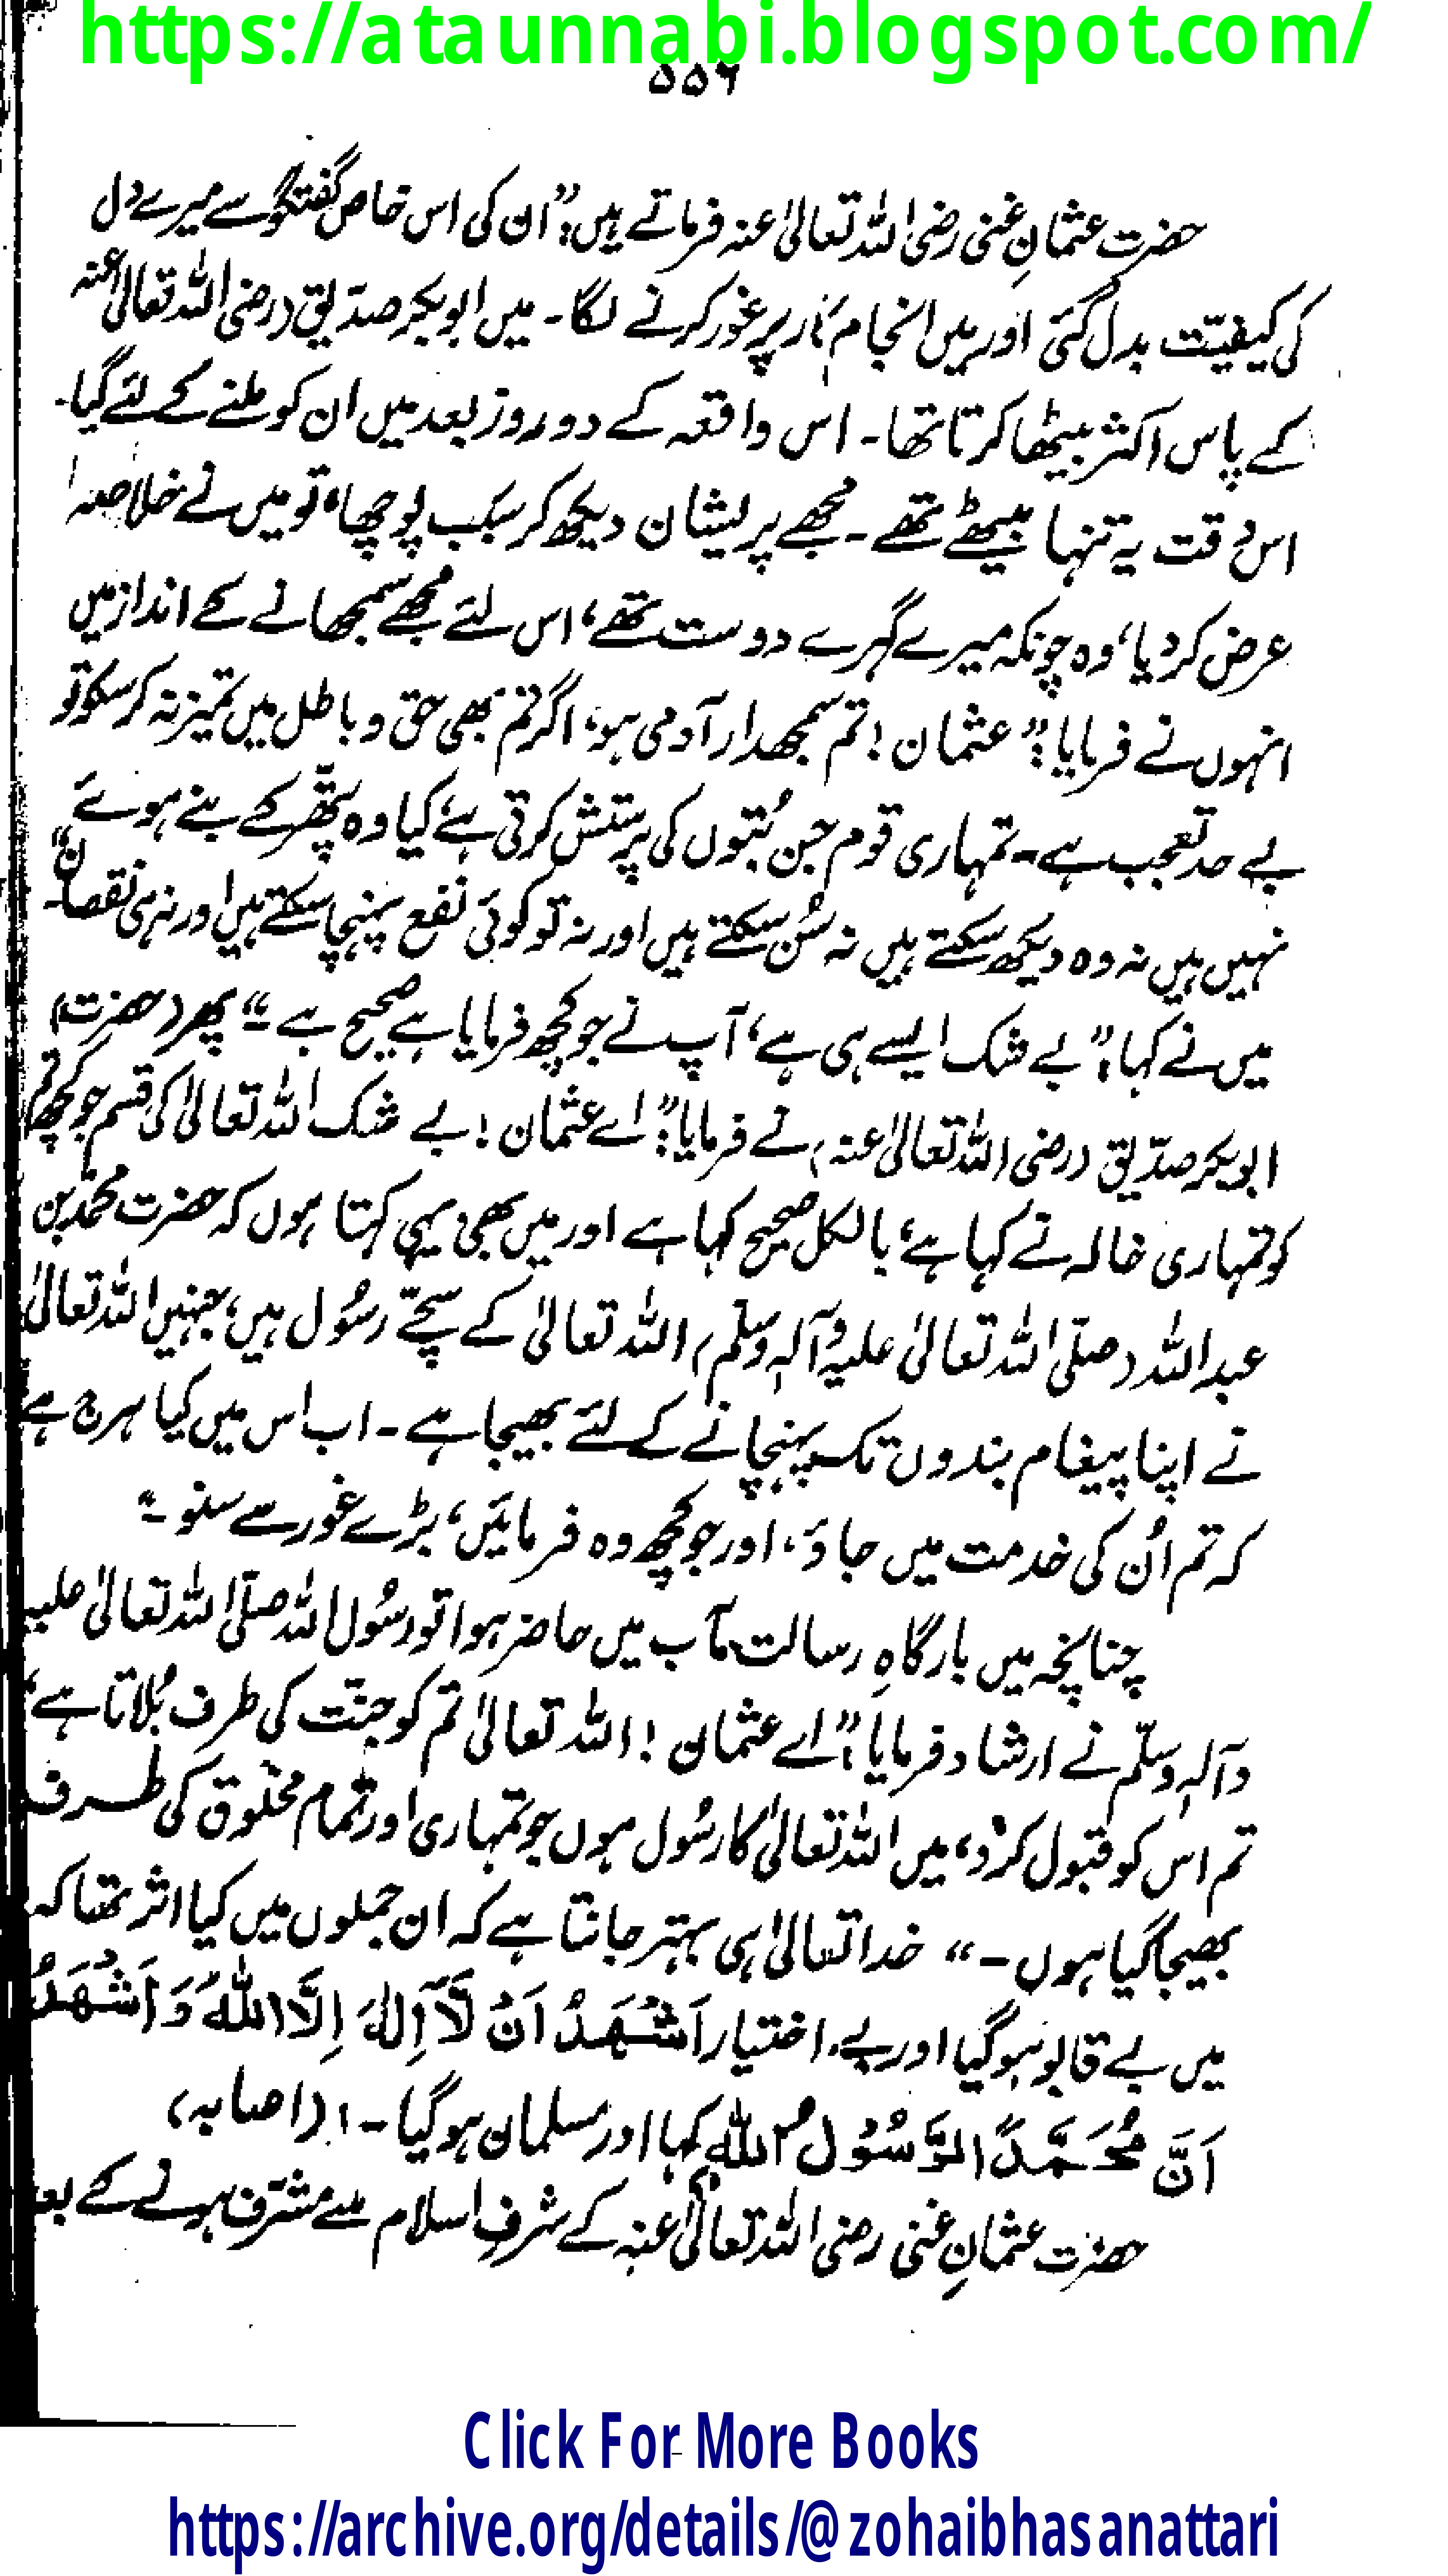 https://ataunnabi.blogspot.com/
۵۵۶
حضرت عثمانِ غنی رضی اللہ تعالیٰ عنہ فرماتے ہیں: ”ان کی اس خاص گفتگو سے میرے دل
کی کیفیت بدل گئی اور میں انجام کار پر غور کرنے لگا۔ میں ابوبکر صدّیق (رضی اللہ تعالیٰ عنہ
کے پاس اکثر بیٹھا کرتا تھا۔ اس واقعہ کے دو روز بعد میں ان کو ملنے کے لئے گیا۔
اس وقت یہ تنہا بیٹھے تھے۔ مجھے پریشان دیکھ کر سبب پوچھا، تو میں نے خلاصہ
عرض کر دیا، وہ چونکہ میرے گہرے دوست تھے، اس لئے مجھے سمجھانے کے انداز میں
انہوں نے فرمایا: ”عثمان! تم سمجھدار آدمی ہو، اگر تم بھی حق و باطل میں تمیز نہ کر سکو تو
بے حد تعجب ہے۔ تمہاری قوم جن بُتوں کی پرستش کرتی ہے، کیا وہ پتّھر کے بنے ہوئے
نہیں ہیں نہ وہ دیکھ سکتے ہیں نہ سُن سکتے ہیں اور نہ تو کوئی نفع پہنچا سکتے ہیں اور نہ ہی نقصان۔“
میں نے کہا: ”بے شک ایسے ہی ہے، آپ نے جو کچھ فرمایا ہے صحیح ہے۔“ پھر (حضرت)
ابوبکر صدّیق (رضی اللہ تعالیٰ عنہ) نے فرمایا: ”اے عثمان! بے شک اللہ تعالیٰ کی قسم جو کچھ تم
کو تمہاری خالہ نے کہا ہے، بالکل صحیح کہا ہے اور میں بھی یہی کہتا ہوں کہ حضرت محمّد بن
عبداللہ (صلّی اللہ تعالیٰ علیہ وآلہٖ وسلّم) اللہ تعالیٰ کے سچّے رسُول ہیں، جنہیں اللہ تعالیٰ
نے اپنا پیغام بندوں تک پہنچانے کے لئے بھیجا ہے۔ اب اس میں کیا ہرج ہے
کہ تم اُن کی خدمت میں جاؤ، اور جو کچھ وہ فرمائیں، بڑے غور سے سنو۔“
چنانچہ میں بارگاہِ رسالت مآب میں حاضر ہوا تو رسُول اللہ صلّی اللہ تعالیٰ علیہ
وآلہٖ وسلّم نے ارشاد فرمایا: ”اے عثمان! اللہ تعالیٰ تم کو جنّت کی طرف بُلاتا ہے،
تم اس کو قبول کرو، میں اللہ تعالیٰ کا رسُول ہوں جو تمہاری اور تمام مخلوق کی طرف
بھیجا گیا ہوں۔“ خدا تعالیٰ ہی بہتر جانتا ہے کہ ان جملوں میں کیا اثر تھا کہ
میں بے قابو ہو گیا اور بے اختیار اَشْهَدُ اَنْ لَّآ اِلٰهَ اِلَّا اللّٰهُ وَ اَشْهَدُ
اَنَّ مُحَمَّدًا الرَّسُوْلُ اللّٰهِ کہا اور مسلمان ہو گیا۔ (اصابہ)
حضرت عثمانِ غنی رضی اللہ تعالیٰ عنہ کے شرفِ اسلام سے مشرّف ہونے کے بعد
Click For More Books
https://archive.org/details/@zohaibhasanattari